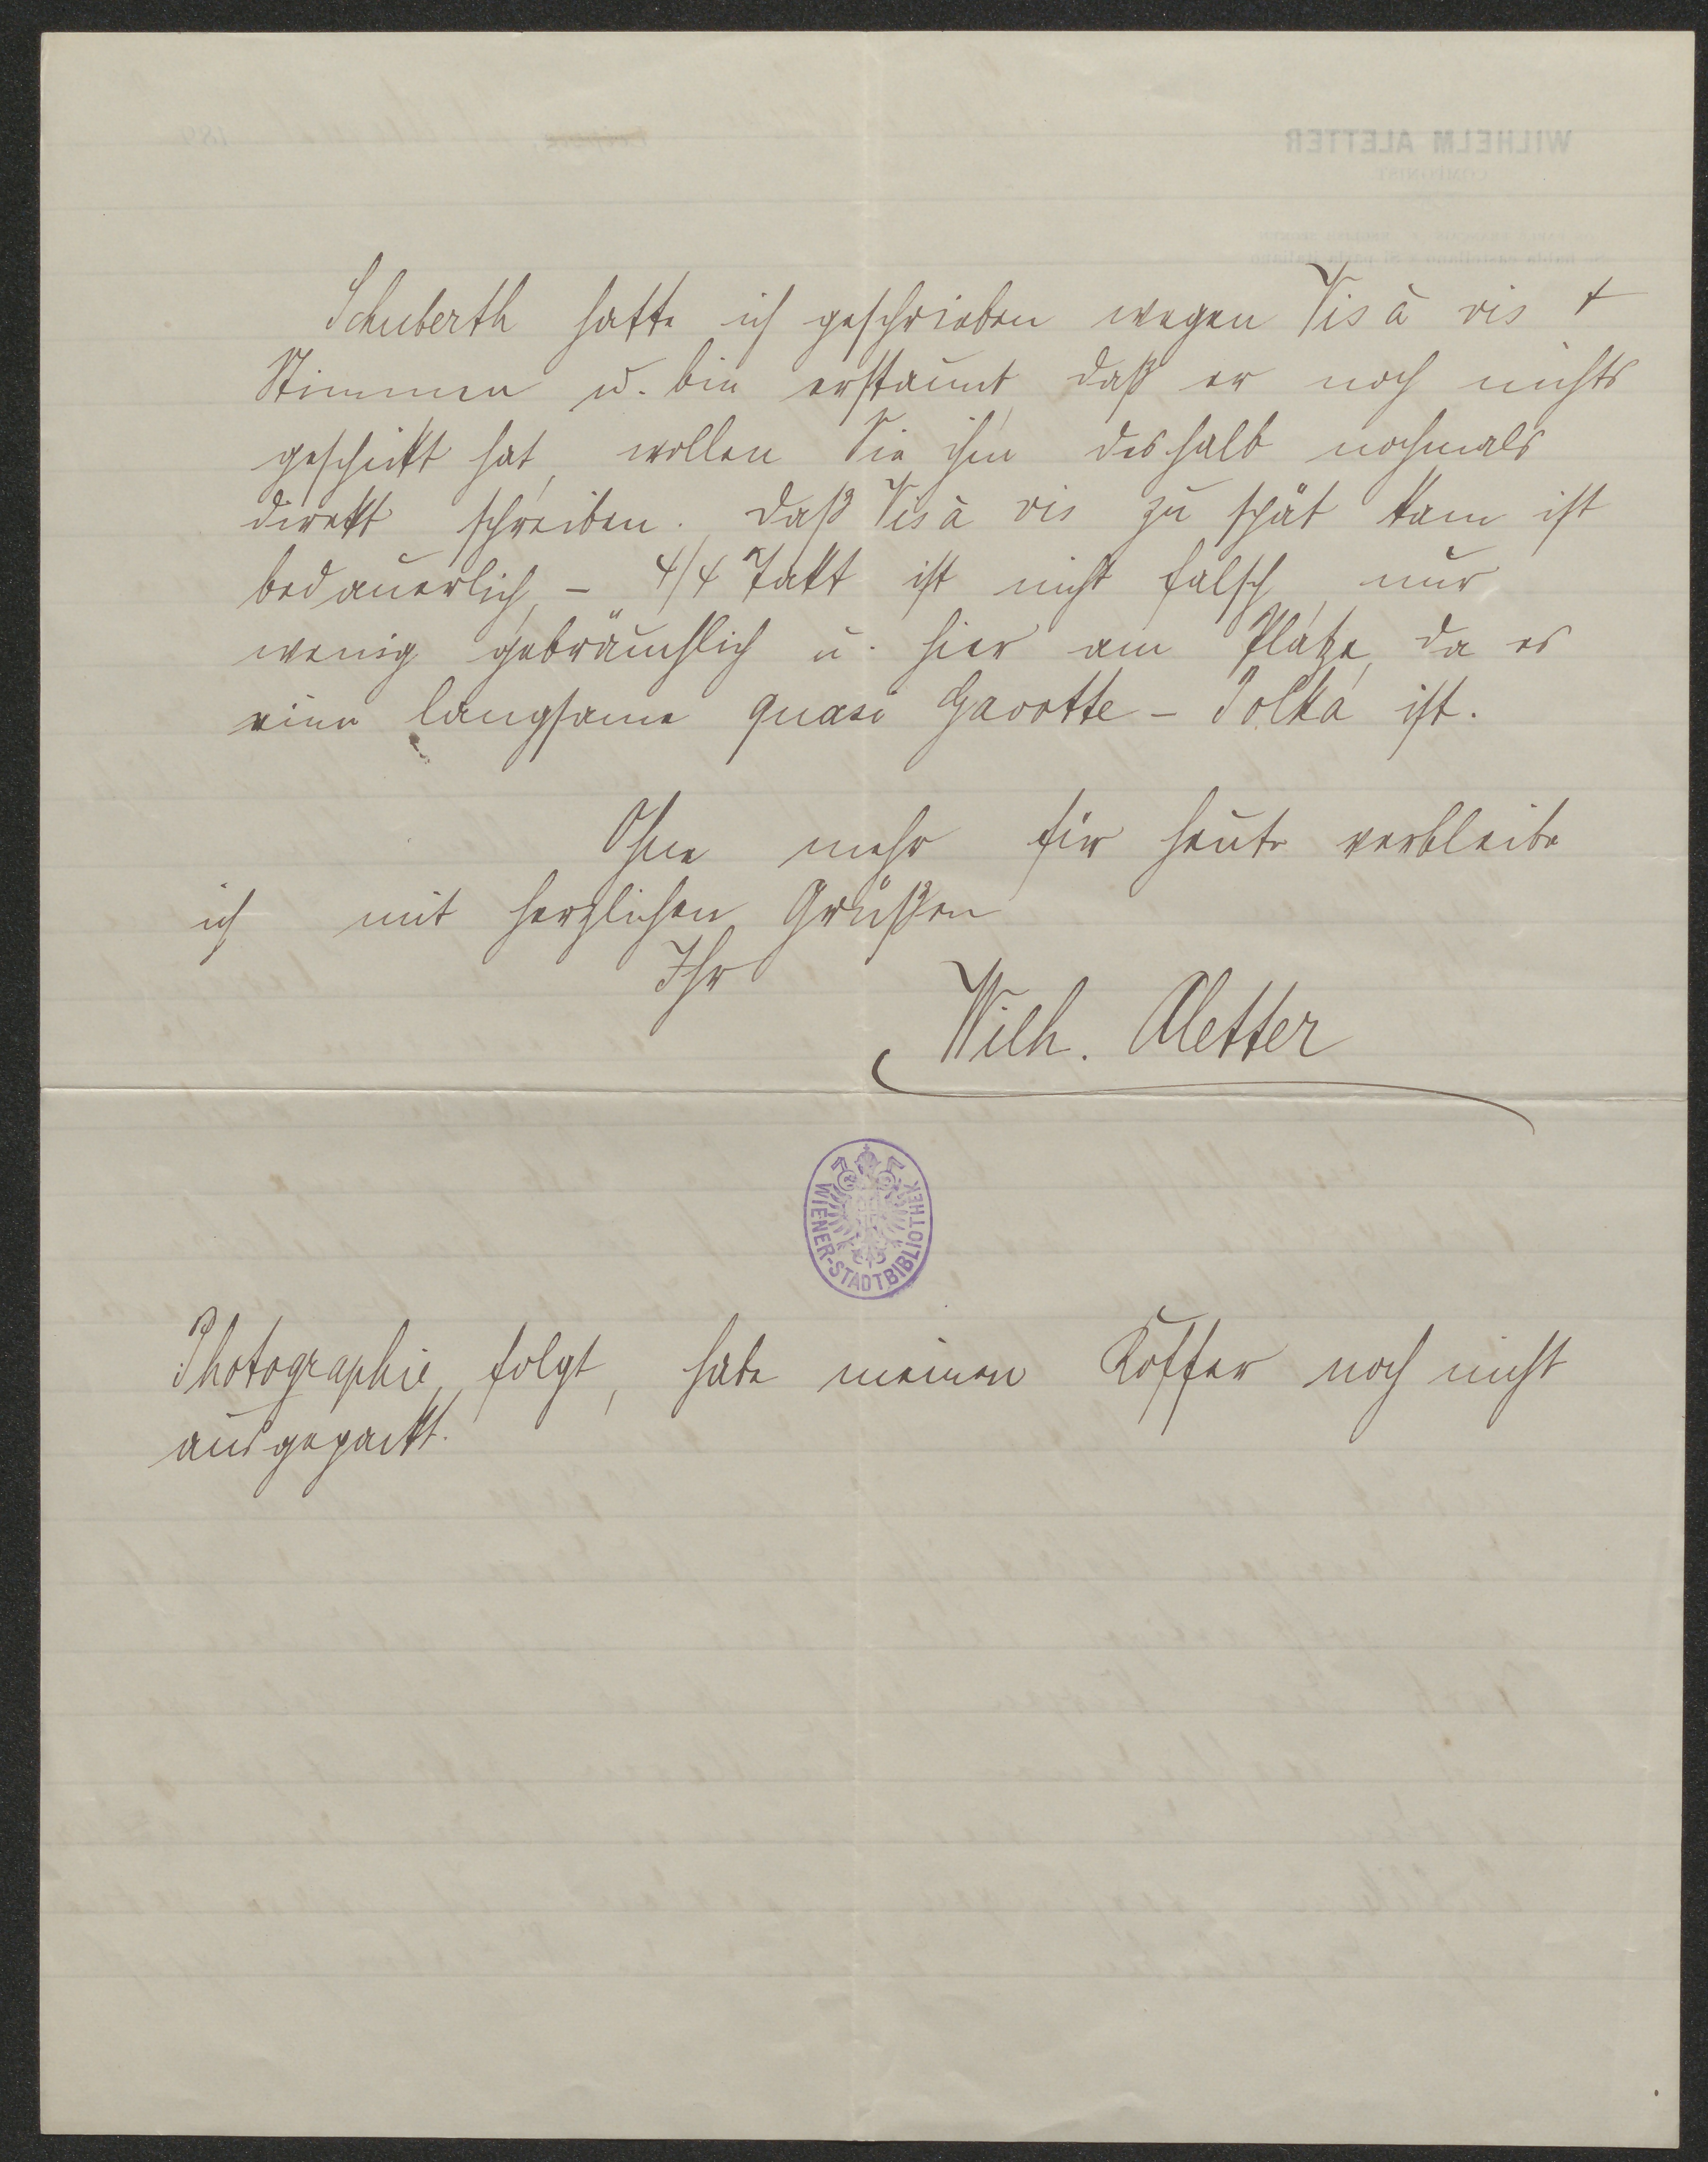 Schuberth hatte ich geschrieben wegen Vis à vis +
Stimmen u. bin erstaunt daß er noch nichts
geschickt hat, wollen Sie ihm deshalb nochmals
direkt schreiben. Daß Vis à vis zu spät kam ist
bedauerlich, – 4/4 Takt ist nicht falsch, nur
wenig gebräuchlich u. hier am Platze, da es
eine langsame quasi Gavotte – Polka ist.
Ohne mehr für heute verbleibe
ich mit herzlichen Grüßen
Ihr
Wilh. Aletter
WIENER-STADTBIBLIOTHEK
Photographie folgt, habe meinen Koffer noch nicht
ausgepackt.